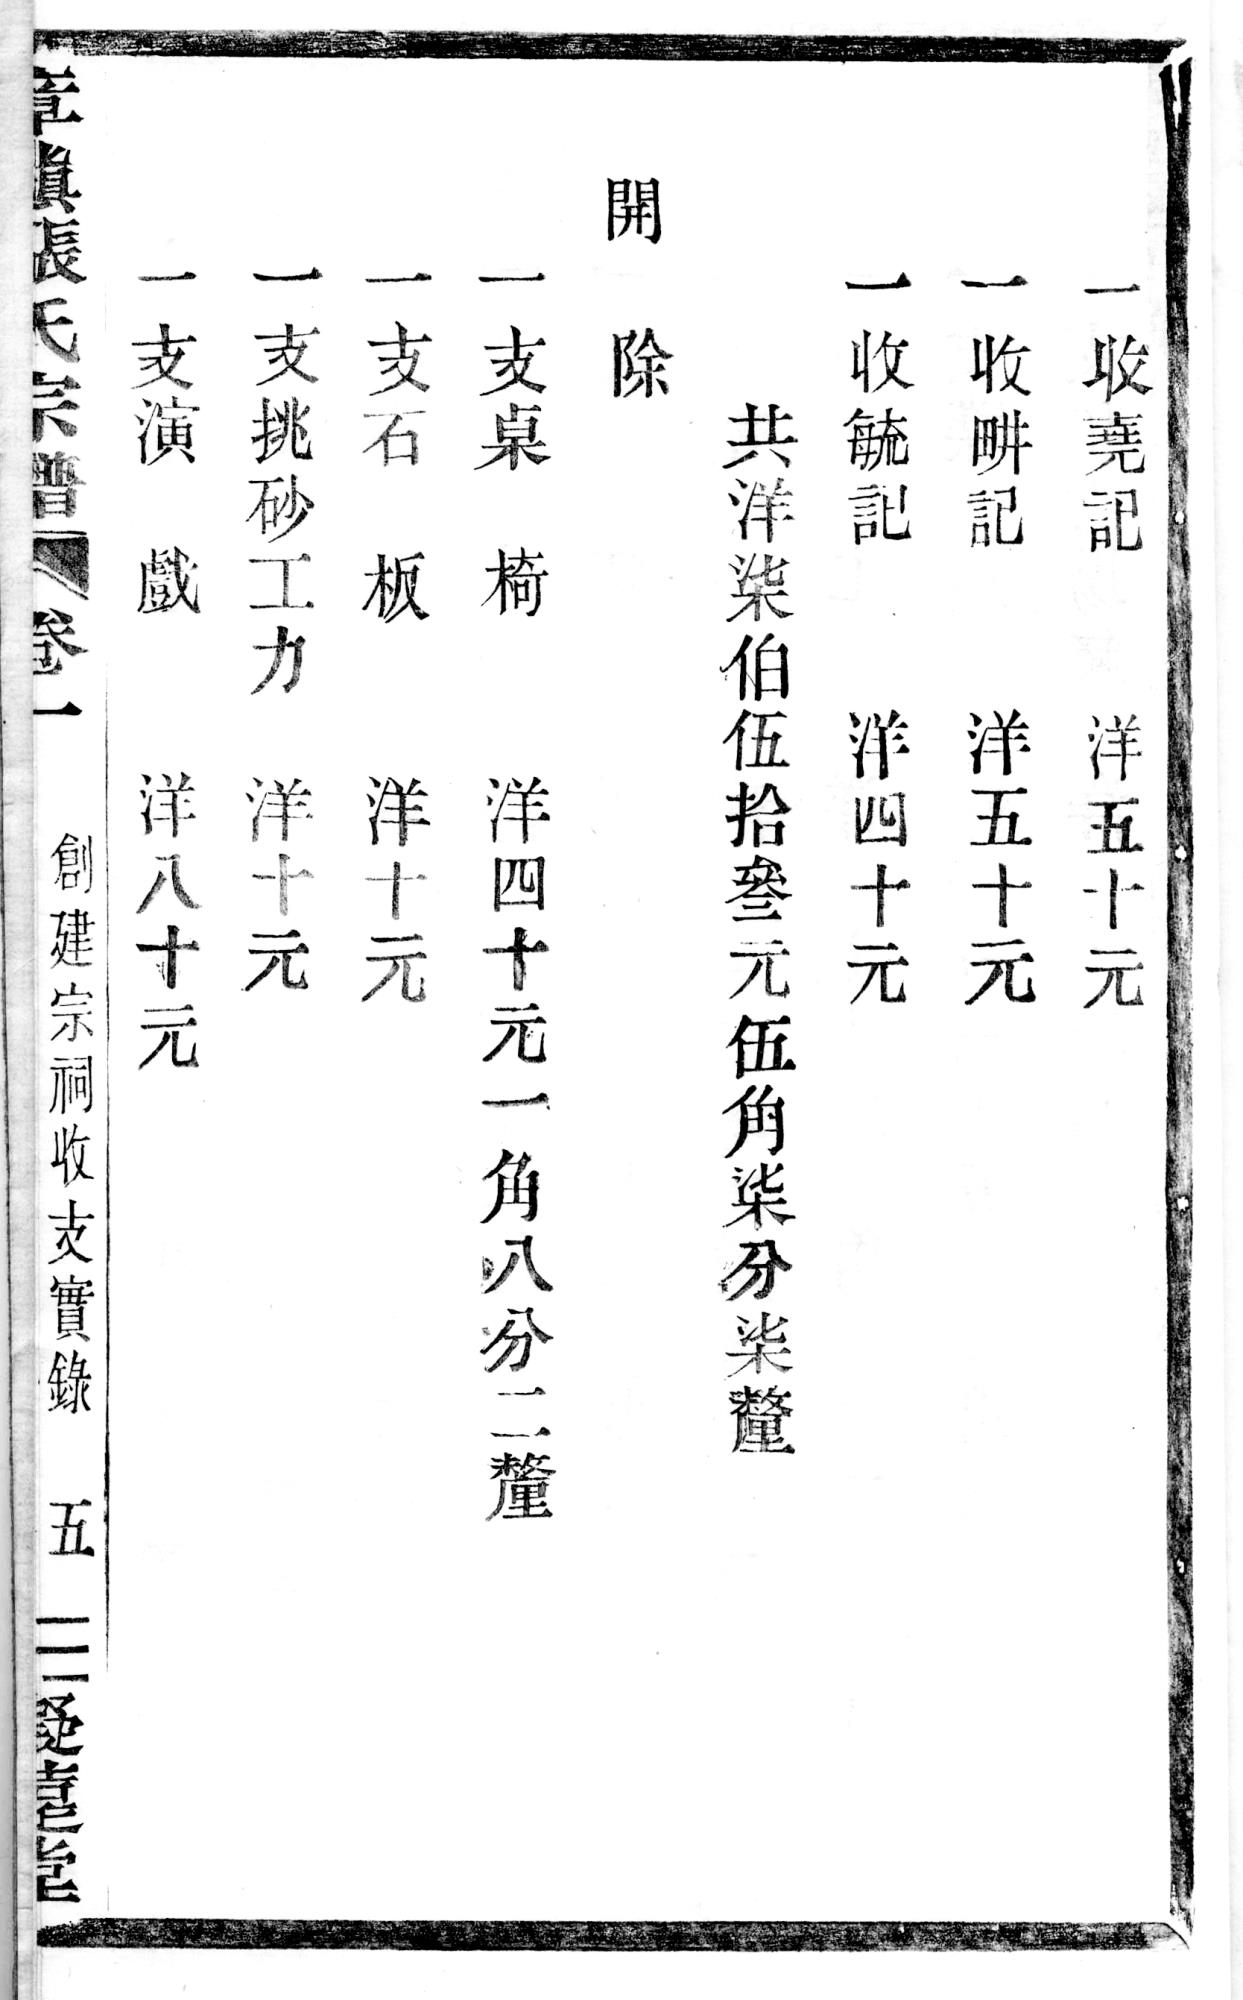 一收堯記 洋五十元
一收畊記 洋五十元
一收毓記 洋四十元
共洋柒伯伍拾叄元伍角柒分柒釐
開除
一支桌椅 洋四十元一角八分二釐
一支石板 洋十元
一支挑砂工力 洋十元
一支演戲 洋八十元
章鎮張氏宗譜 卷一 創建宗祠收支實錄 五 堂